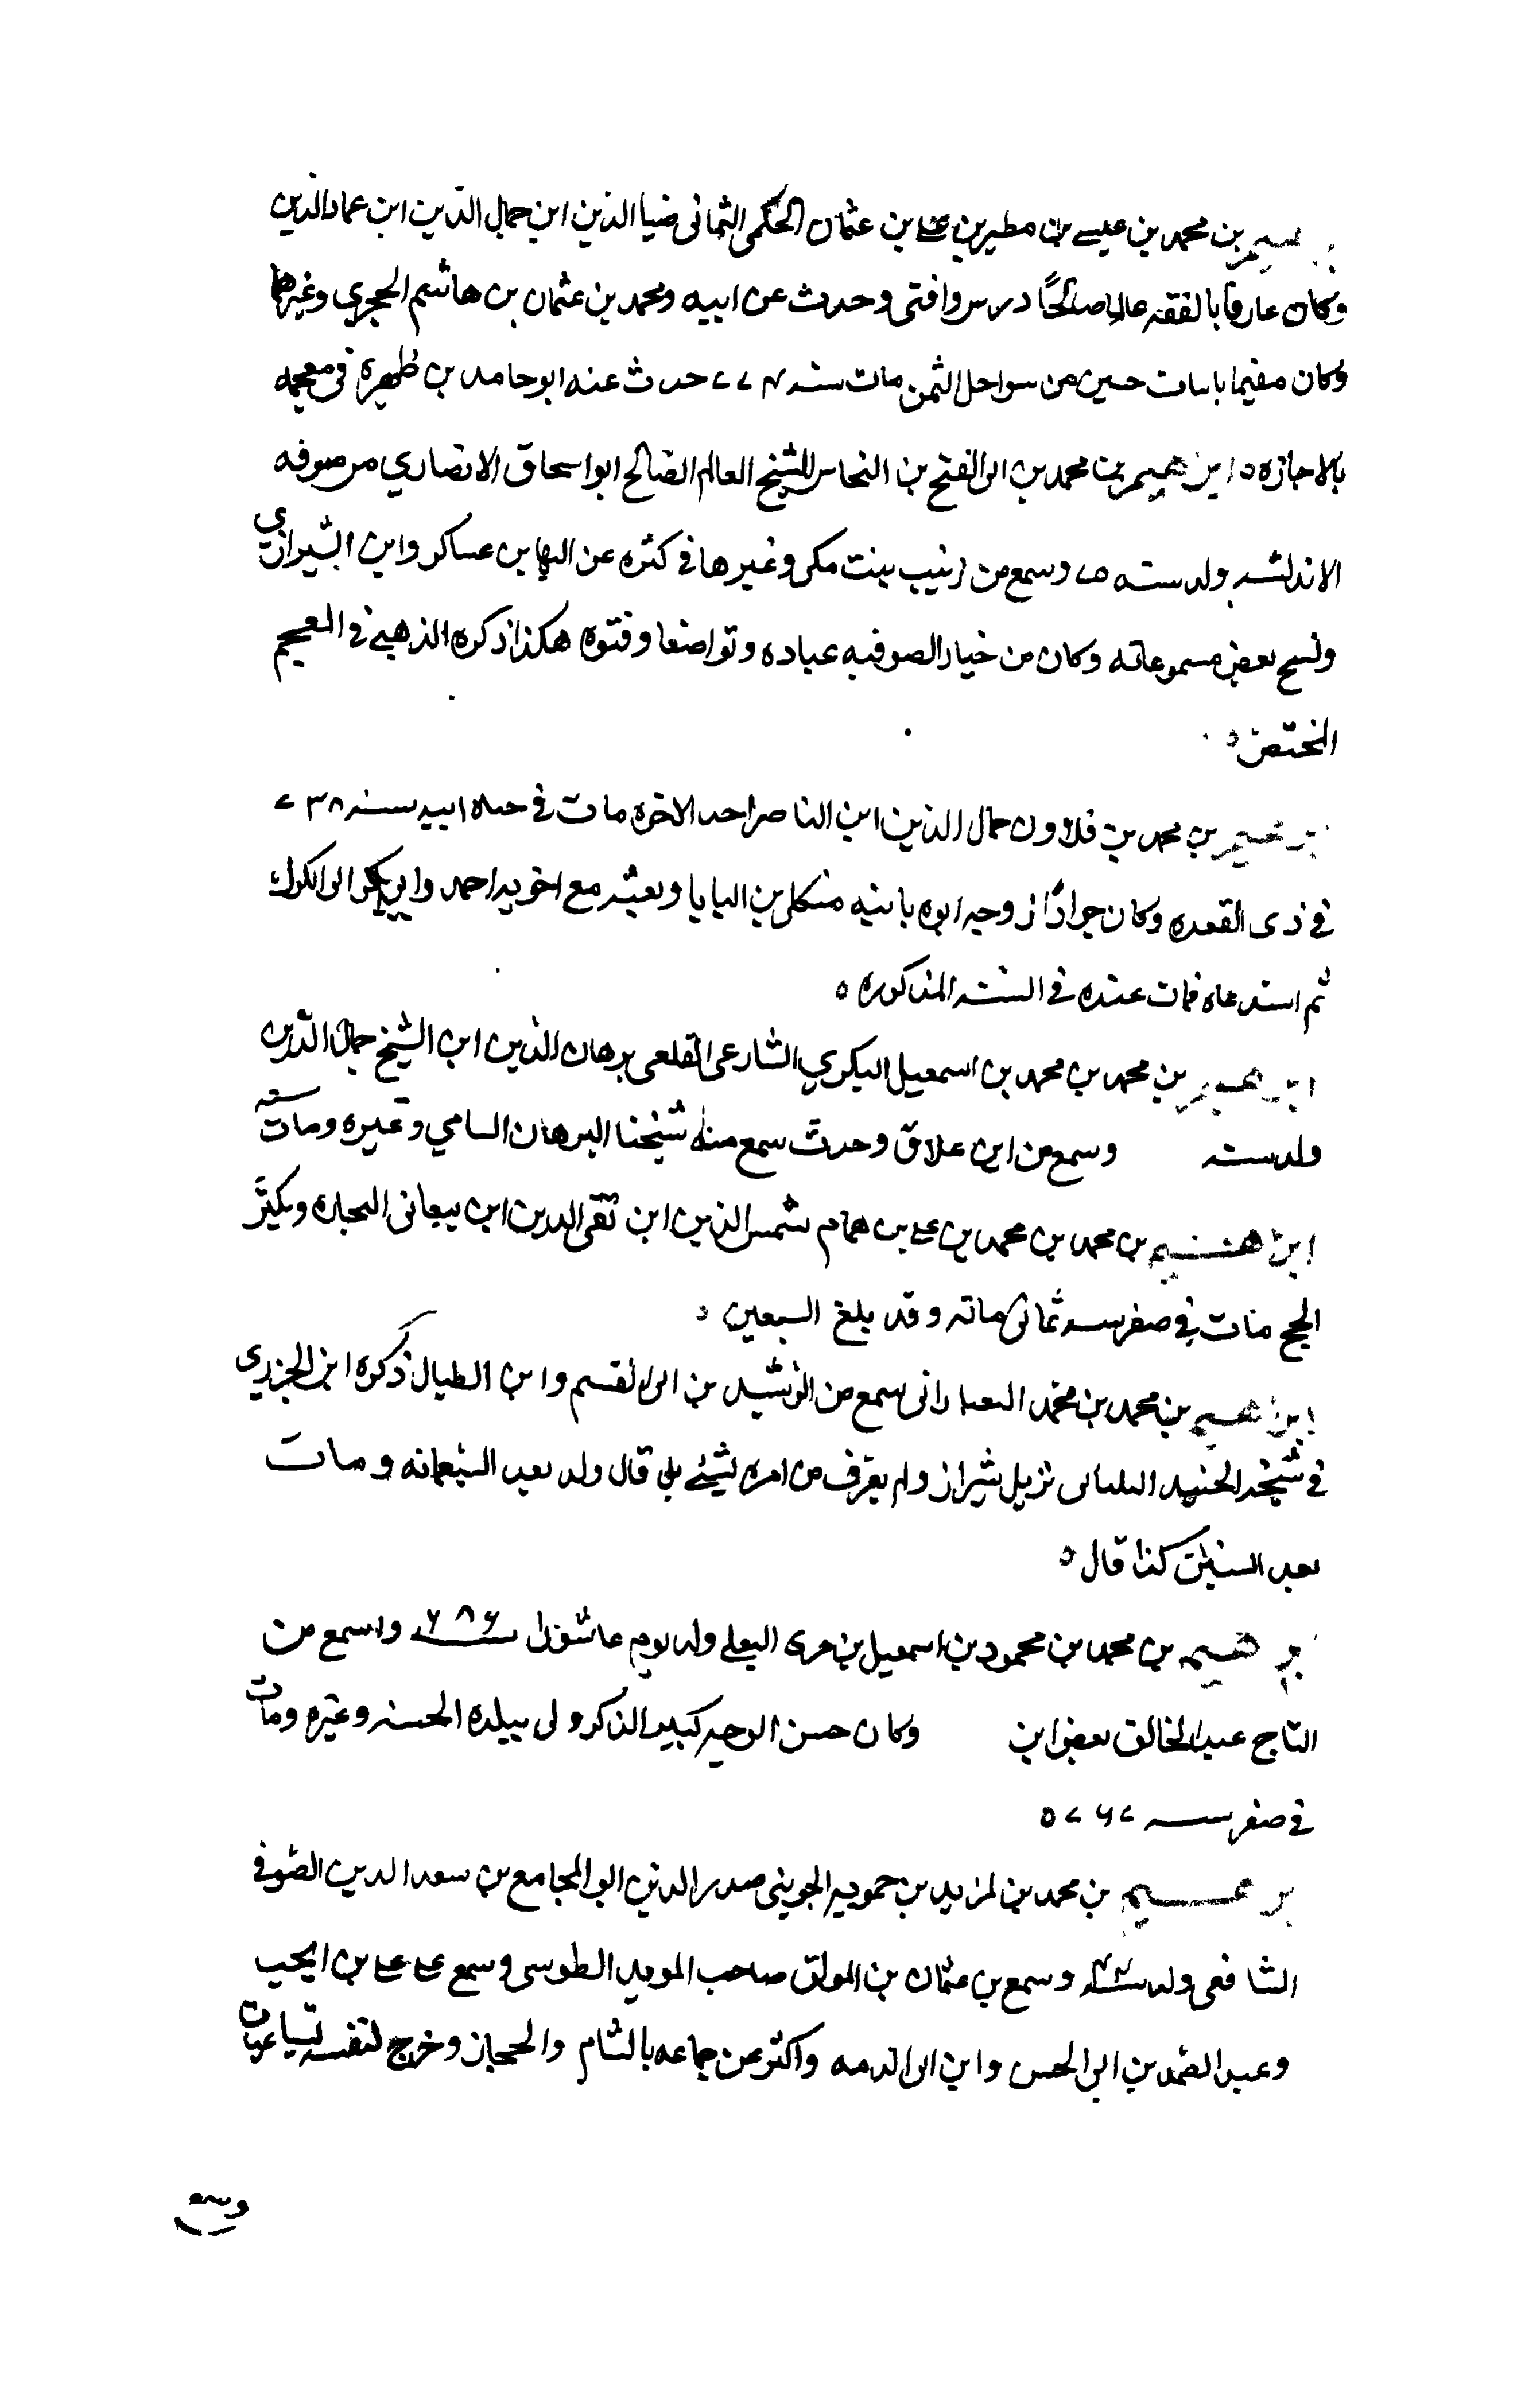 ابرهيم بن محمد بن عيسى بن مطير بن على بن عثمان الحكمى اليمانى ضيا الدين ابن جمال الدين ابن عماد الدين
وكان عارفا بالفقه عالما صالحًا درس وافتى وحدث عن ابيه ومحمد بن عثمان بن هاشم الحجرى وغيرهما
وكان مقيما بابيات حسين من سواحل اليمن مات سنه ٧٧٤ حدث عنه ابو حامد بن ظهيره فى معجمه
بالاجازه ٥ ابرهيم بن محمد بن ابى الفتح بن النحاس الشيخ العالم الصالح ابو اسحاق الانصاري من صوفيه
الاندلسيه ولد سنه وسمع من زينب بنت مكى وغيرها فى كثره عن البها بن عساكر وابن الشيرازى
ونسخ بعض مسموعاته وكان من خيار الصوفيه عباده وتواضعا وفتوه هكذا ذكره الذهبى فى المعجم
المختص ٥
ابرهيم بن محمد بن قلاوون جمال الدين ابن الناصر احد الاخوه مات فى حياه ابيه سنه ٧٣٨
فى ذى القعده وكان جوادًا زوجه ابوه بابنه منكلى بن البابا وبعثه مع اخويه احمد وابى بكر الى الكرك
ثم استدعاه فمات عنده فى السنه المذكوره ٥
ابرهيم بن محمد بن محمد بن اسمعيل البكري الشارعى القلعى برهان الدين ابن الشيخ جمال الدين
ولد سنه وسمع من ابن علاق وحدث سمع منه شيخنا البرهان الشامي وغيره ومات سنه
ابرهيم بن محمد بن محمد بن على بن همام شمس الدين ابن تقى الدين ابن يعانى التجاره ويكثر
الحج مات فى صفر سنه ثمانى مائه وقد بلغ السبعين ٥
ابرهيم بن محمد بن محمد سمع من الرشيد بن ابى القسم وابن الطبال ذكره ابن الجزرى
فى شيخه الجنيد البليانى نزيل شيراز ولم يعرف من امره بشيئ بل قال ولد بعد السبعمائه ومات
بعد الستين كذا قال ٥
ابرهيم بن محمد بن محمود بن اسمعيل بن مرى البعلى ولد يوم عاشورا سنه ٦٨٦ واسمع من
التاج عبد الخالق بعض ابن وكان حسن الوجه كبير الذكر ولى ببلده الحسبه وغيره ومات
فى صفر سنه ٧٦٧ ٥
ابرهيم بن محمد بن المؤيد بن حمويه الجوينى صدر الدين ابو المجامع بن سعد الدين الصوفى
الشافعى ولد سنه وسمع بن عثمان بن الموفق صاحب المويد الطوسى وسمع على على بن انجب
وعبد الصمد بن ابى الحسن وابن ابى الدنيه واكثر عن جماعه بالشام والحجاز وخرج لنفسه تساعيات
وسمع